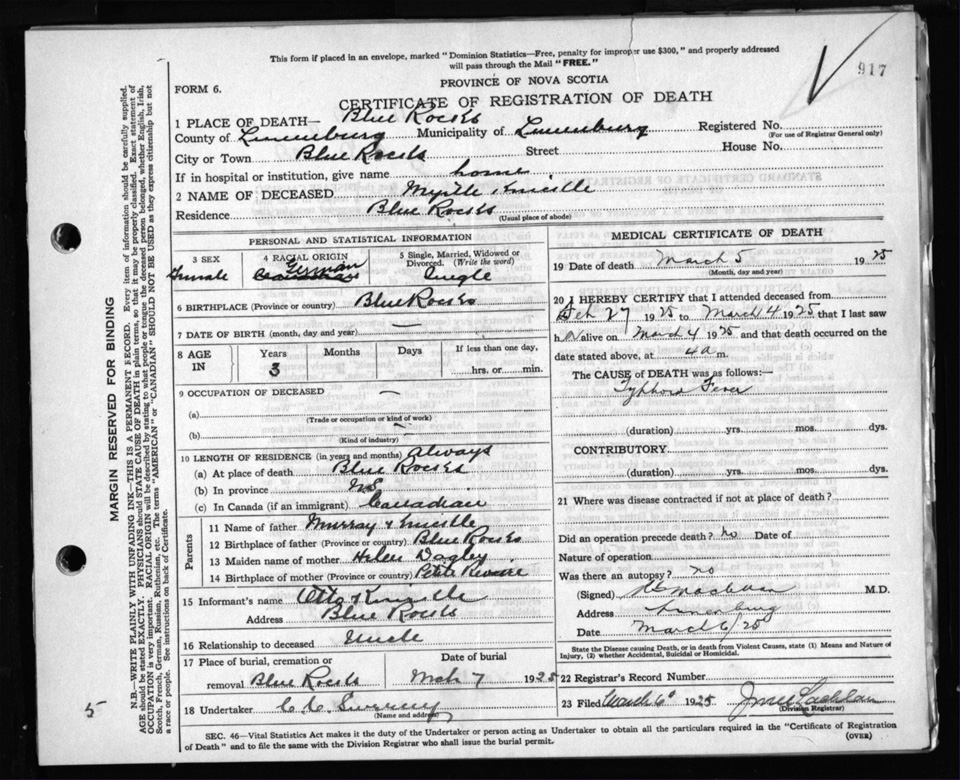 This form if placed in an envelope, marked "Dominion Statistics—Free, penalty for improper use $300," and properly addressed
will pass through the Mail "FREE."
917
PROVINCE OF NOVA SCOTIA
FORM 6.
CERTIFICATE OF REGISTRATION OF DEATH
1 PLACE OF DEATH— Blue Rocks
County of Lunenburg Municipality of Lunenburg Registered No.
(For use of Registrar General only)
City or Town Blue Rocks Street House No.
If in hospital or institution, give name home
2 NAME OF DECEASED Myrtle
Residence Blue Rocks
(Usual place of abode)
PERSONAL AND STATISTICAL INFORMATION
3 SEX 4 RACIAL ORIGIN 5 Single, Married, Widowed or
Divorced. (Write the word)
Female German Single
6 BIRTHPLACE (Province or country) Blue Rocks
7 DATE OF BIRTH (month, day and year) —
8 AGE IN Years Months Days If less than one day,
3 hrs. or min.
9 OCCUPATION OF DECEASED —
(a)
(Trade or occupation or kind of work)
(b) —
(Kind of industry)
10 LENGTH OF RESIDENCE (in years and months) always
(a) At place of death Blue Rocks
(b) In province N.S.
(c) In Canada (if an immigrant) Canadian
Parents
11 Name of father Murray
12 Birthplace of father (Province or country) Blue Rocks
13 Maiden name of mother Helen Dagley
14 Birthplace of mother (Province or country) Petite Riviere
15 Informant's name Otto
Address Blue Rocks
16 Relationship to deceased Uncle
17 Place of burial, cremation or Date of burial
removal Blue Rocks Mch 7 1925
18 Undertaker
(Name and address)
MEDICAL CERTIFICATE OF DEATH
19 Date of death March 5 1925
(Month, day and year)
20 I HEREBY CERTIFY that I attended deceased from
Feb 27 1925 to March 4 1925 that I last saw
h er alive on March 4 1925 and that death occurred on the
date stated above, at 4 a m.
The CAUSE of DEATH was as follows:—
Typhoid Fever
(duration) yrs. mos. dys.
CONTRIBUTORY
(duration) yrs. mos. dys.
21 Where was disease contracted if not at place of death?
Did an operation precede death? No Date of
Nature of operation
Was there an autopsy? no
(Signed) M.D.
Address Lunenburg
Date March 6/25
State the Disease causing Death, or in death from Violent Causes, state (1) Means and Nature of
Injury, (2) whether Accidental, Suicidal or Homicidal.
22 Registrar's Record Number
23 Filed March 6 1925
(Division Registrar)
SEC. 46—Vital Statistics Act makes it the duty of the Undertaker or person acting as Undertaker to obtain all the particulars required in the "Certificate of Registration
of Death" and to file the same with the Division Registrar who shall issue the burial permit.
(OVER)
MARGIN RESERVED FOR BINDING
N.B.—WRITE PLAINLY WITH UNFADING INK—THIS IS A PERMANENT RECORD. Every item of information should be carefully supplied.
AGE should be stated EXACTLY. PHYSICIANS should STATE CAUSE OF DEATH in plain terms, so that it may be properly classified. Exact statement of
OCCUPATION is very important. RACIAL ORIGIN will be described by stating to what people or tongue the deceased person belonged, whether English, Irish,
Scotch, French, German, Russian, Ruthenian, etc. The terms "AMERICAN" or "CANADIAN" SHOULD NOT BE USED as they express citizenship but not
a race or people. See instructions on back of Certificate.
5